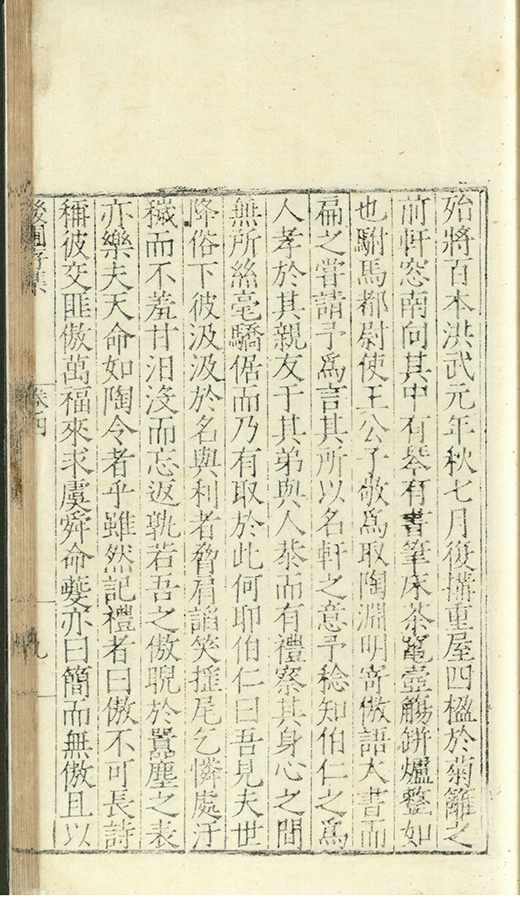 殆將百本洪武元年秋七月復搆重屋四楹於菊籬之
前軒窓南向其中有琴有書筆床茶竈壺觴缾爐整如
也駙馬都尉使王公子敬爲取陶淵明寄傲語大書而
扁之嘗請予爲言其所以名軒之意予稔知伯仁之爲
人孝於其親友于其弟與人恭而有禮察其身心之間
無所絲毫驕倨而乃有取於此何耶伯仁曰吾見夫世
降俗下彼汲汲於名與利者脅肩謟笑搖尾乞憐處汙
穢而不羞甘汨沒而忘返孰若吾之傲睨於囂塵之表
亦樂夫天命如陶令者乎雖然記禮者曰傲不可長詩
稱彼交匪傲萬福來求虞舜命夔亦曰簡而無傲且以
後圃
卷四
九